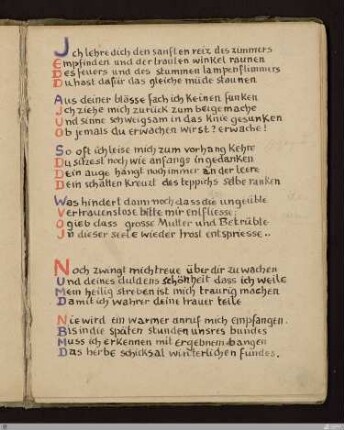 Ich lehre dich den sanften reiz des zimmers
Empfinden und der trauten winkel raunen
Des feuers und des stummen lampenflimmers
Du hast dafür das gleiche müde staunen
Aus deiner blässe fach ich keinen funken
Ich ziehe mich zurück zum beigemache
Und sinne schweigsam in das knie gesunken
Ob jemals du erwachen wirst? erwache!
So oft ich leise mich zum vorhang kehre
Du sitzest noch wie anfangs in gedanken
Dein auge hängt noch immer an der leere
Dein schatten kreuzt des teppichs selbe ranken
Was hindert dann noch dass das ungeübte
Vertrauenslose bitte mir entfliesse:
O gieb dass grosse Mutter und Betrübte
In dieser seele wieder trost entspriesse..
Noch zwingt mich treue über dir zu wachen
Und deines duldens schönheit dass ich weile
Mein heilig streben ist mich traurig machen
Damit ich wahrer deine trauer teile
Nie wird ein warmer anruf mich empfangen.
Bis in die späten stunden unsres bundes
Muss ich erkennen mit ergebnem bangen
Das herbe schicksal winterlichen fundes.